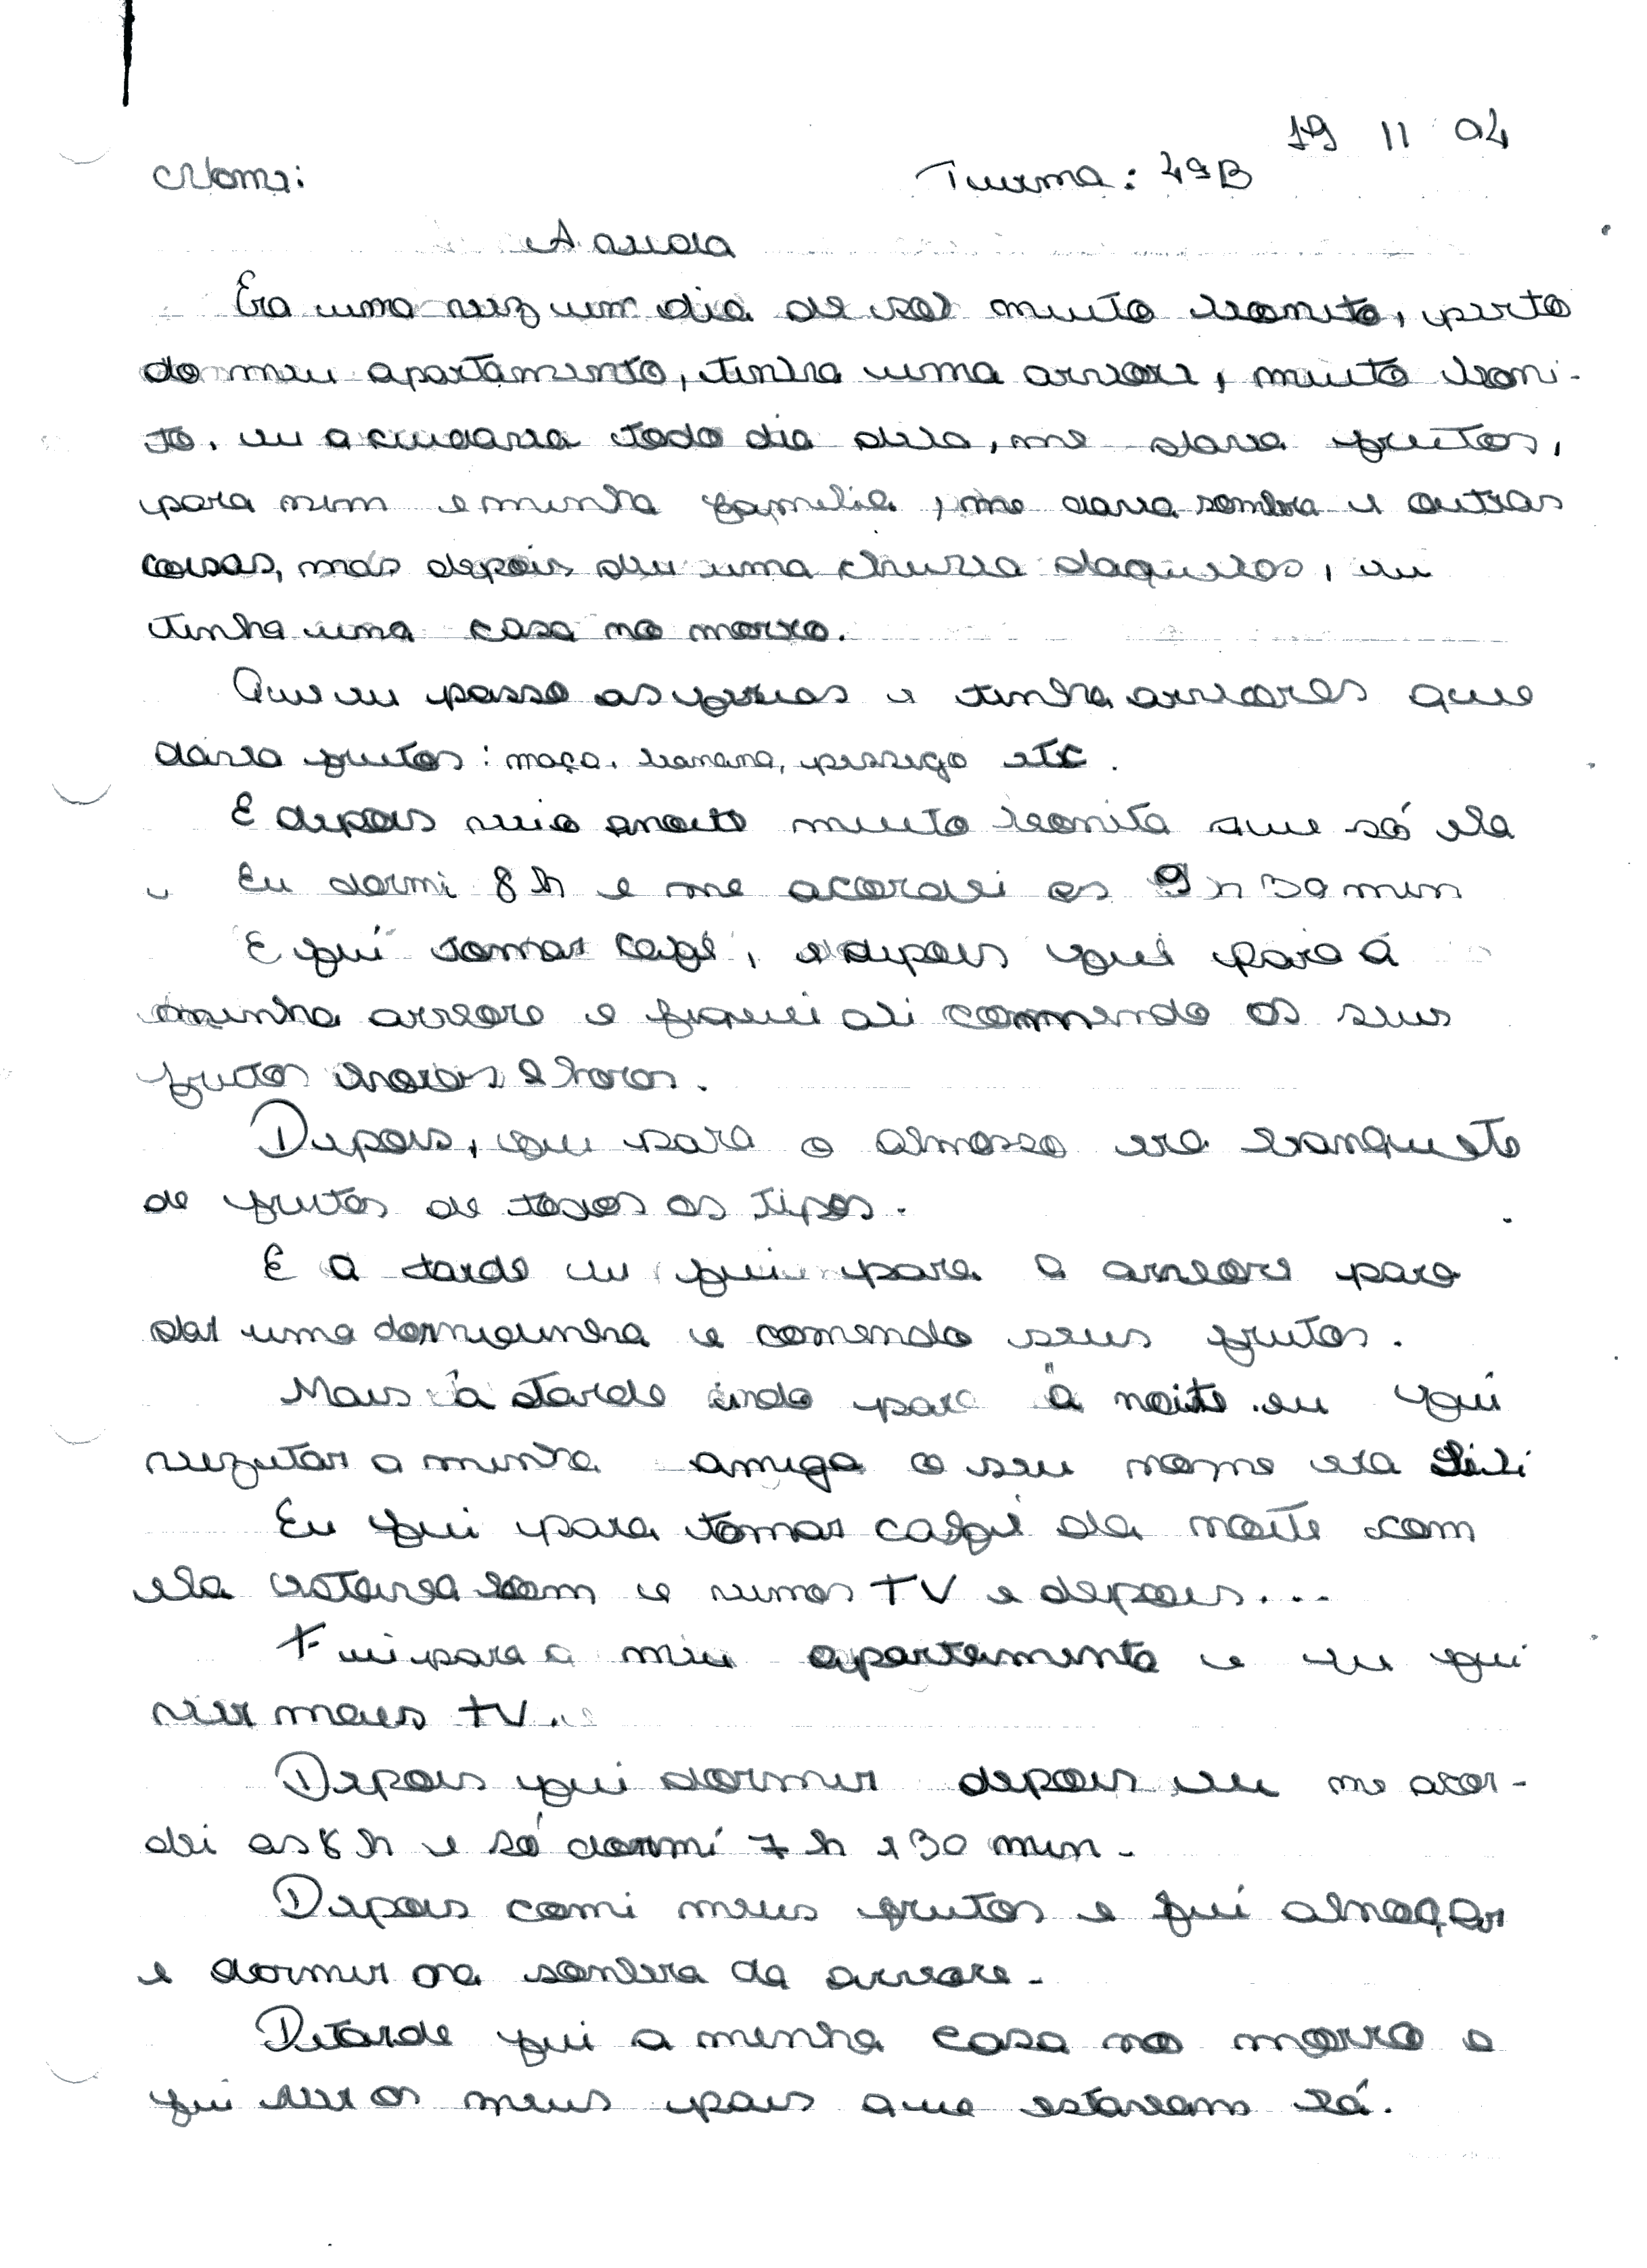 19 11 04
Nome: Turma: 4ªB
A avida
Era uma vez um dia de sol muito bonito, perto
do meu apartamento, tinha uma arvore, muito boni-
to. eu a cuidava todo dia dela, me dava frutos,
para mim e minha familia, me dava sombra e outras
coisas, mas depois deu uma chuva daquelas, eu
tinha uma casa no morro.
Que eu passo as ferias e tinha arvores que
dava frutos: maça, banana, pessego etc.
E depois veio anoite muito bonita que só ela
Eu dormi 8 h e me acordei as 9 h 30 min
E fui tomar café, e depois fui para a
minha arvore e fiquei ali comendo os seus
frutos horas e horas.
Depois, fui para o almosso era banquete
de frutos de todos os tipos.
E a tarde eu fui para a arvore para
dar uma dormidinha e comendo seus frutos.
Mais à tarde indo para à noite eu fui
vizitar a minha amiga o seu nome era Lili
Eu fui para tomar café da noite com
ela estava bom e vimos TV e depois...
Fui para o meu apartamento e eu fui
ver mais TV.
Depois fui dormir depois eu me acor-
dei as 8 h e só dormi 7 h e 30 min.
Depois comi meus frutos e fui almoçar
e dormir na sombra da arvore.
Detarde fui a minha casa no morro e
fui ver os meus pais que estavam lá.